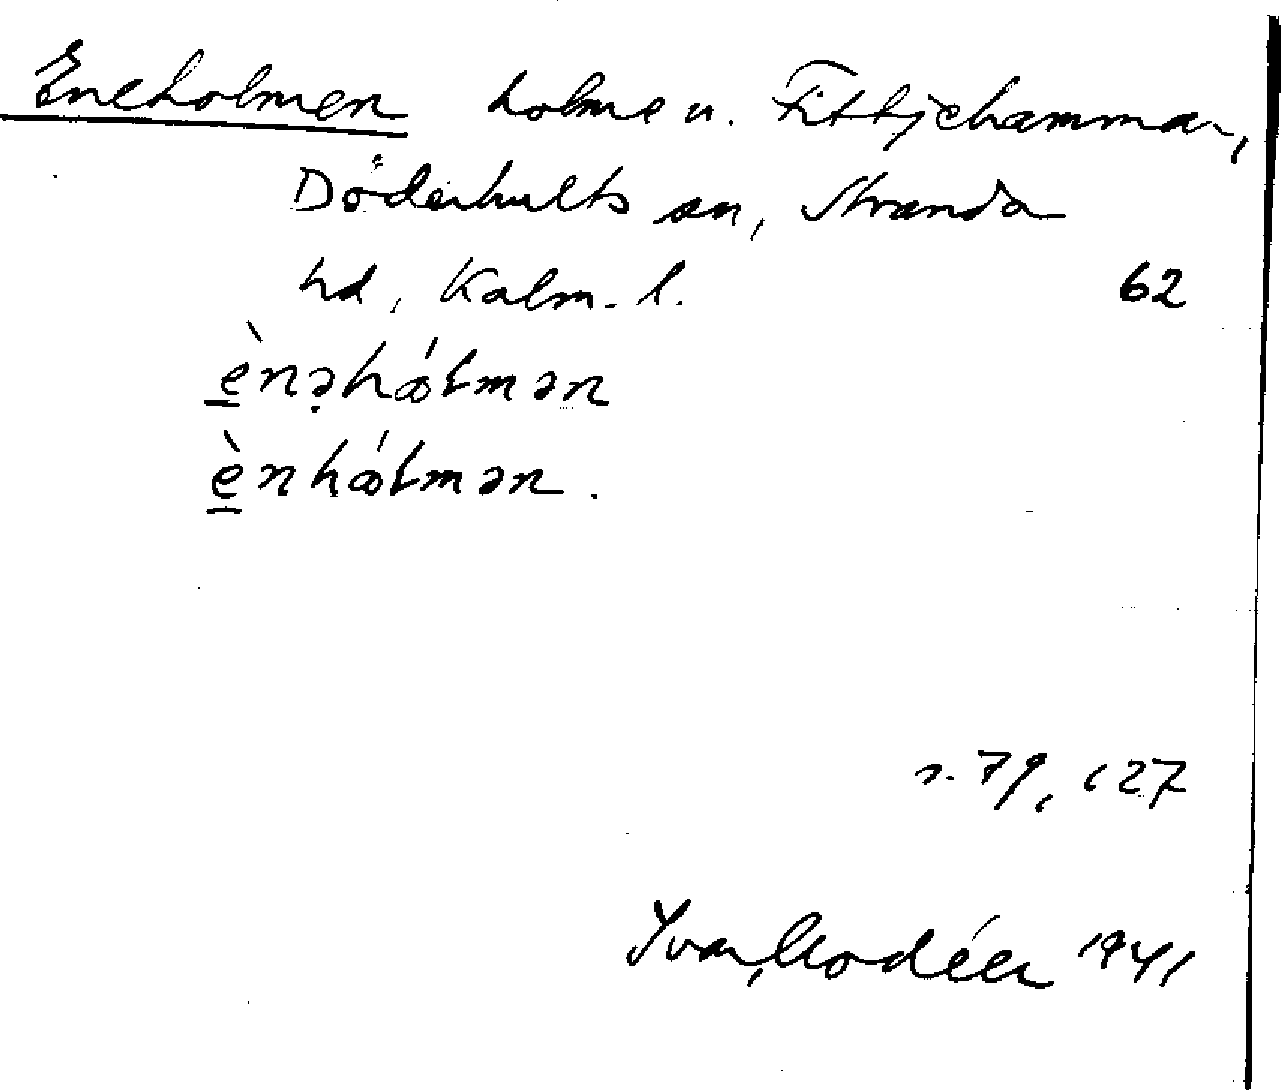 Eneholmen holme u. Fittjehammar,
Döderhults sn, Stranda
hd, Kalm. l. 62
ènəhólmən
ènhólmən.
s. 79, 127
Ivar Modéer 1941